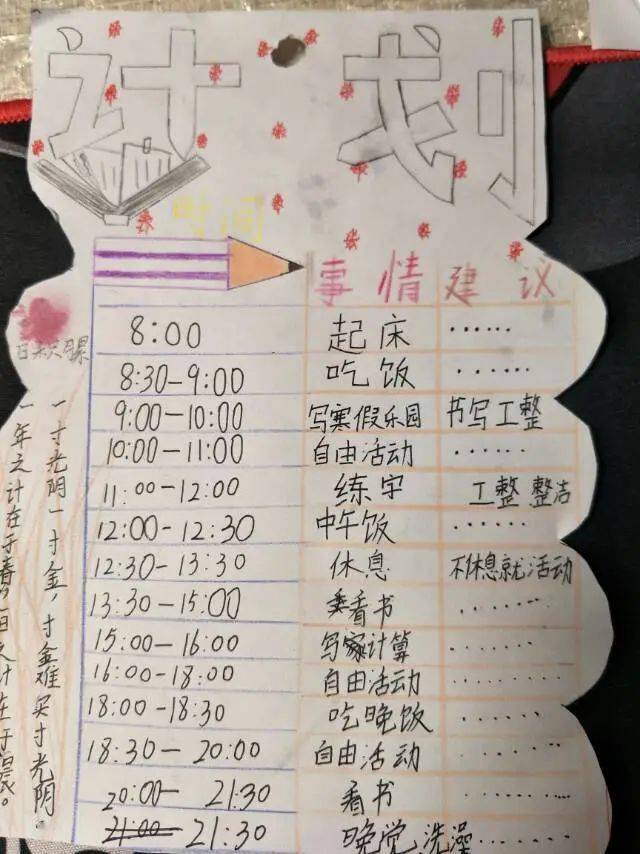 计划
时间
事情 建议
8:00 起床 ......
8:30-9:00 吃饭 ......
9:00-10:00 写寒假乐园 书写工整
10:00-11:00 自由活动 ......
11:00-12:00 练字 工整 整洁
12:00-12:30 中午饭 ......
12:30-13:30 休息 不休息就活动
13:30-15:00 看书 .......
15:00-16:00 写家计算 .......
16:00-18:00 自由活动 .........
18:00-18:30 吃晚饭 .......
18:30-20:00 自由活动 ........
20:00-21:30 看书 ..........
21:00-21:30 晚觉 洗澡 ........
一寸光阴一寸金,寸金难买寸光阴。
一年之计在于春,一日之计在于晨。